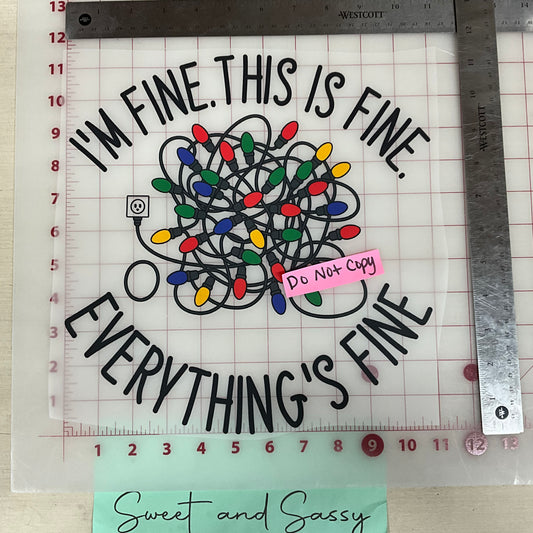 WESTCOTT
WESTCOTT
I'M FINE. THIS IS FINE.
DO NOT COPY
EVERYTHING'S FINE
13
12
11
10
9
8
7
6
5
4
3
2
1
1 2 3 4 5 6 7 8 9 10 11 12 13
Sweet and Sassy